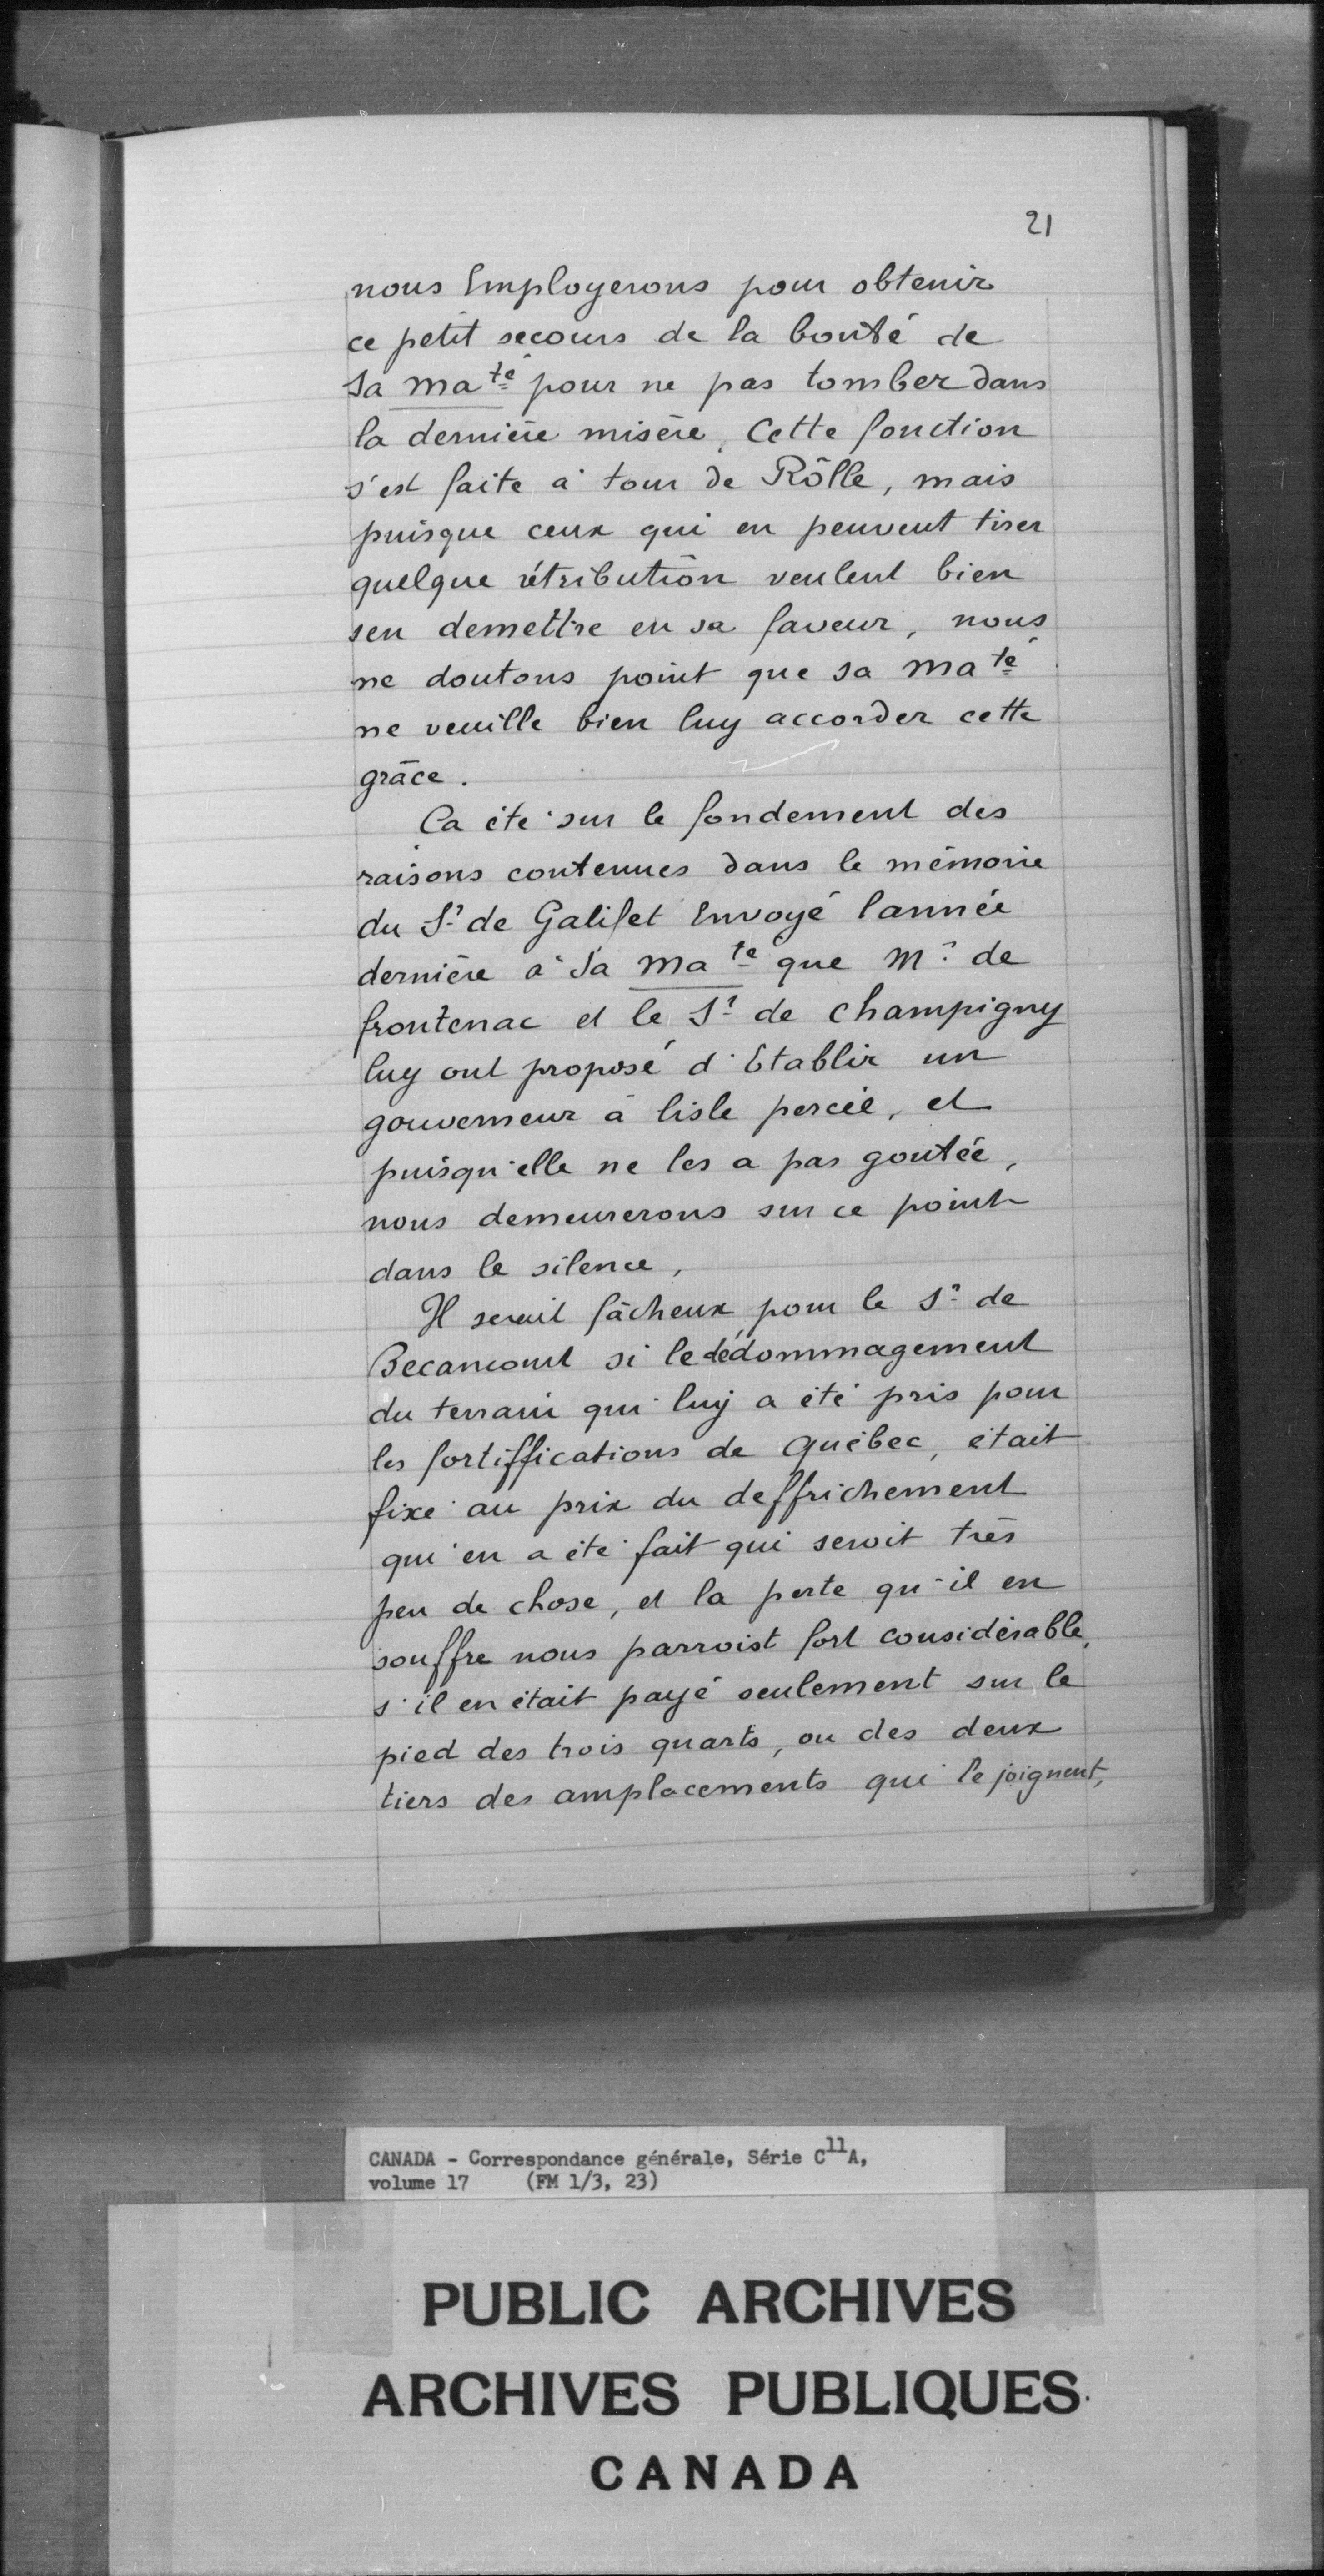 21
nous Employerons pour obtenir
ce petit secours de la bonté de
Sa Ma té pour ne pas tomber dans
la dernière misère, Cette fonction
s'est faite à tour de Rôlle, mais
puisque ceux qui en peuvent tirer
quelque rétribution veulent bien
sen demettre en sa faveur, nous
ne doutons point que sa Ma té
ne veuille bien luy accorder cette
grâce.
Ca été sur le fondement des
raisons contenues dans le mémoire
du Sr de Galifet Envoyé lannée
dernière à Sa Ma te que Mr de
frontenac et le Sr de Champigny
luy ont proposé d'Etablir un
gouverneur à lisle percée, et
puisqu'elle ne les a pas goutée,
nous demeurerons sur ce point
dans le silence,
Il serait fâcheux pour le Sr de
Becancourt si le dédommagement
du terrain qui luy a été pris pour
les fortiffications de Québec, était
fixé au prix du deffrichement
qui en a été fait qui seroit très
peu de chose, et la perte qu'il en
souffre nous parroist fort considérable,
s'il en était payé seulement sur le
pied des trois quarts, ou des deux
tiers des amplacements qui le joignent,
CANADA - Correspondance générale, Série C11A,
volume 17 (FM 1/3, 23)
PUBLIC ARCHIVES
ARCHIVES PUBLIQUES
CANADA